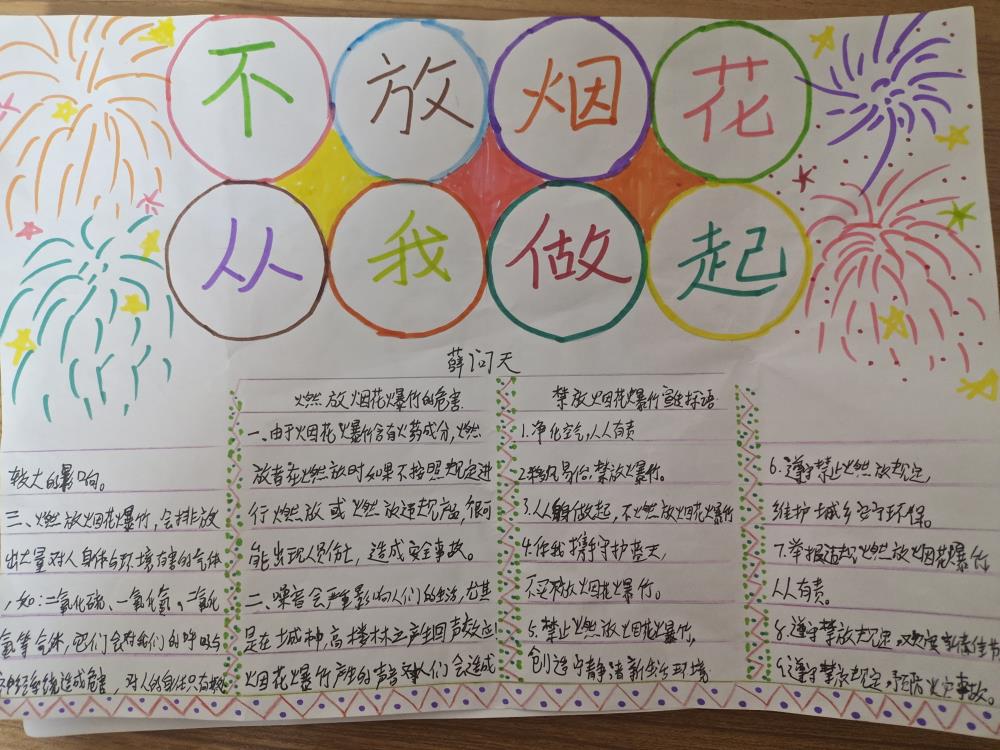 不放烟花
从我做起
薛问天
燃放烟花爆竹的危害
一、由于烟花爆竹含有火药成分,燃
放者在燃放时如果不按照规定进
行燃放或燃放违规产品,很可
能出现人员伤亡,造成安全事故。
二、噪音会严重影响人们的生活,尤其
是在城种,高楼林立产生回声效应
烟花爆竹产生的声音 人们会造成
较大的影响。
三、燃放烟花爆竹,会排放
出大量对人身体与环境有害的气体
,如:二氧化硫、一氧化氮、二氧化
氮等气体,它们会对我们的呼吸与
神经系统造成危害,对人的身体只有
禁放烟花爆竹宣传标语
1.净化空气,人人有责
2.移风易俗,禁放爆竹。
3.从身做起,不燃放烟花火爆竹
4.你我携手守护蓝天,
不买放烟花爆竹。
5.禁止燃放烟花爆竹,
创造宁静清新生活环境
6.遵守禁止燃放规定,
维护城乡安宁环保。
7.举报违规燃放烟花爆竹
人人有责。
8.遵守禁放规定,欢度新春佳节
9.遵守禁放规定,预防火灾事故。